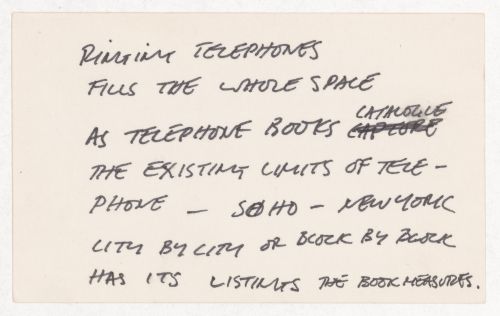 RINGING TELEPHONES
FILLS THE WHOLE SPACE
AS TELEPHONE BOOKS CATALOGUE
THE EXISTING LIMITS OF TELE-
PHONE — SOHO — NEW YORK
CITY BY CITY OR BLOCK BY BLOCK
HAS ITS LISTINGS THE BOOK MEASURES.